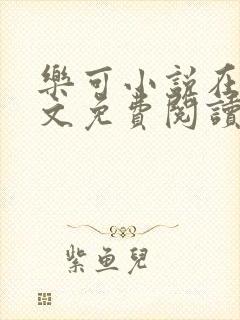 樂可小說在
文免費閱讀
紫魚兒